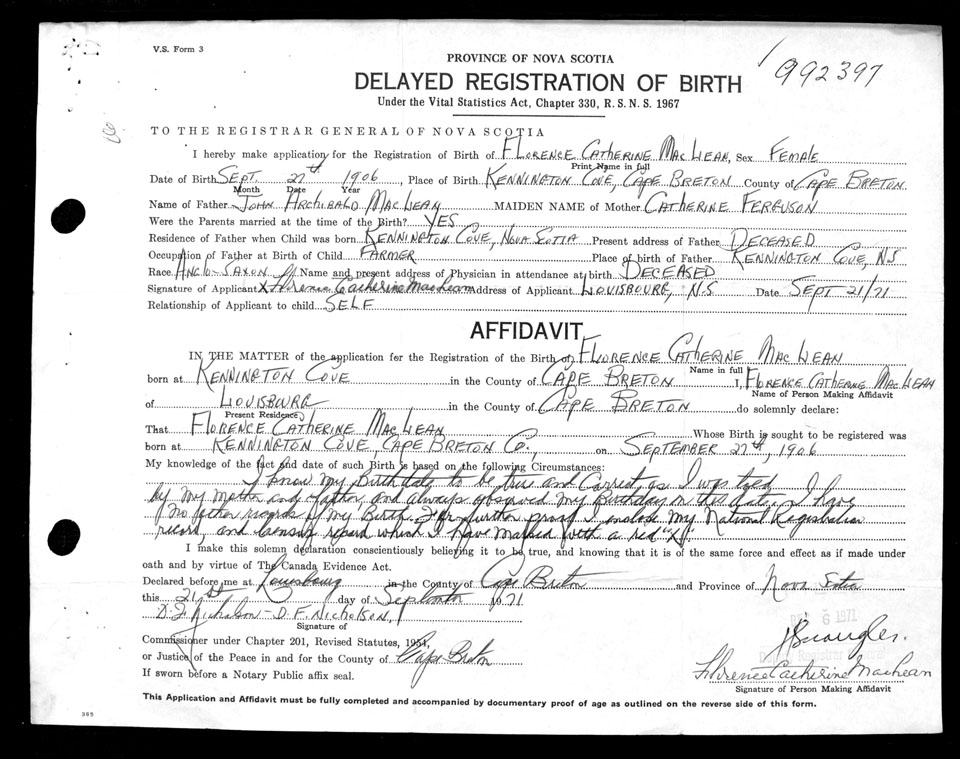 V.S. Form 3
PROVINCE OF NOVA SCOTIA
992397
DELAYED REGISTRATION OF BIRTH
Under the Vital Statistics Act, Chapter 330, R.S.N.S. 1967
TO THE REGISTRAR GENERAL OF NOVA SCOTIA
I hereby make application for the Registration of Birth of FLORENCE CATHERINE MAC LEAN, Sex FEMALE
Print Name in full
Date of Birth SEPT 27th 1906, Place of Birth KENNINGTON COVE, CAPE BRETON County of CAPE BRETON
Month Date Year
Name of Father JOHN ARCHIBALD MACLEAN MAIDEN NAME of Mother CATHERINE FERGUSON
Were the Parents married at the time of the Birth? YES
Residence of Father when Child was born KENNINGTON COVE, NOVA SCOTIA Present address of Father DECEASED
Occupation of Father at Birth of Child FARMER Place of birth of Father KENNINGTON COVE, N.S
Race ANGLO-SAXON Name and present address of Physician in attendance at birth DECEASED
Signature of Applicant X Florence Catherine MacLean Address of Applicant LOUISBOURG, N.S Date SEPT 21/71
Relationship of Applicant to child SELF
AFFIDAVIT
IN THE MATTER of the application for the Registration of the Birth of FLORENCE CATHERINE MAC LEAN
Name in full
born at KENNINGTON COVE in the County of CAPE BRETON I, FLORENCE CATHERINE MACLEAN
Name of Person Making Affidavit
of LOUISBOURG in the County of CAPE BRETON do solemnly declare:
(Present Residence)
That FLORENCE CATHERINE MACLEAN Whose Birth is sought to be registered was
born at KENNINGTON COVE, CAPE BRETON CO., on SEPTEMBER 27th, 1906
My knowledge of the fact and date of such Birth is based on the following Circumstances:
I know my Birth date to be true and Correct, as I was told
by my mother and father, and always observed my Birthday on this date. I have
no other records of my Birth. For further proof I enclose my National Registration
record, and Census report which I have marked with a red X.
I make this solemn declaration conscientiously believing it to be true, and knowing that it is of the same force and effect as if made under
oath and by virtue of The Canada Evidence Act.
Declared before me at Louisbourg in the County of Cape Breton and Province of Nova Scotia
this 21st day of September 1971
D.F. Nicholson - D.F. NICHOLSON,
Signature of
6 1971
Commissioner under Chapter 201, Revised Statutes, 1954,
or Justice of the Peace in and for the County of Cape Breton
Registrar General
If sworn before a Notary Public affix seal.
Florence Catherine MacLean
Signature of Person Making Affidavit
This Application and Affidavit must be fully completed and accompanied by documentary proof of age as outlined on the reverse side of this form.